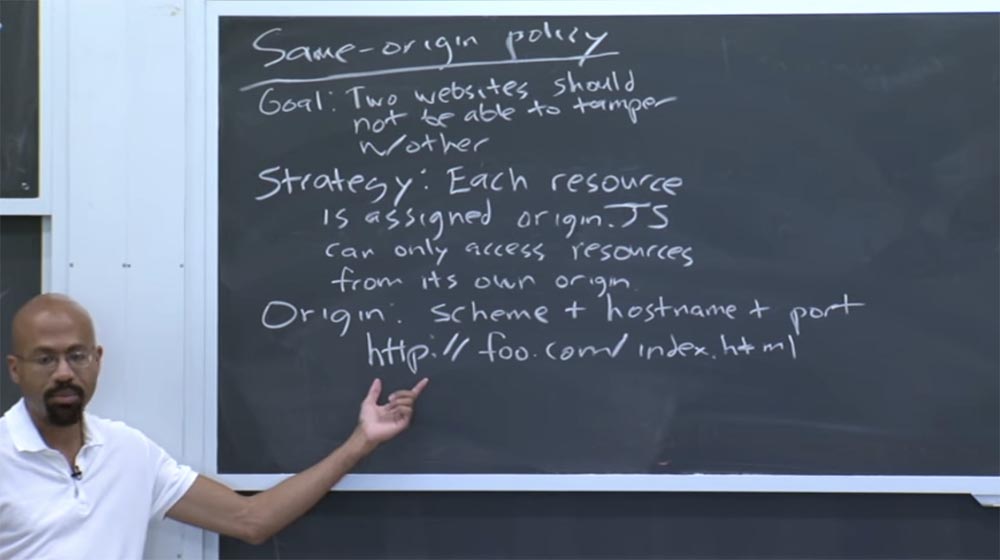 Same-origin policy
Goal: Two websites should
not be able to tamper
w/other
Strategy: Each resource
is assigned origin. JS
can only access resources
from its own origin.
Origin: scheme + hostname + port
http://foo.com/index.html